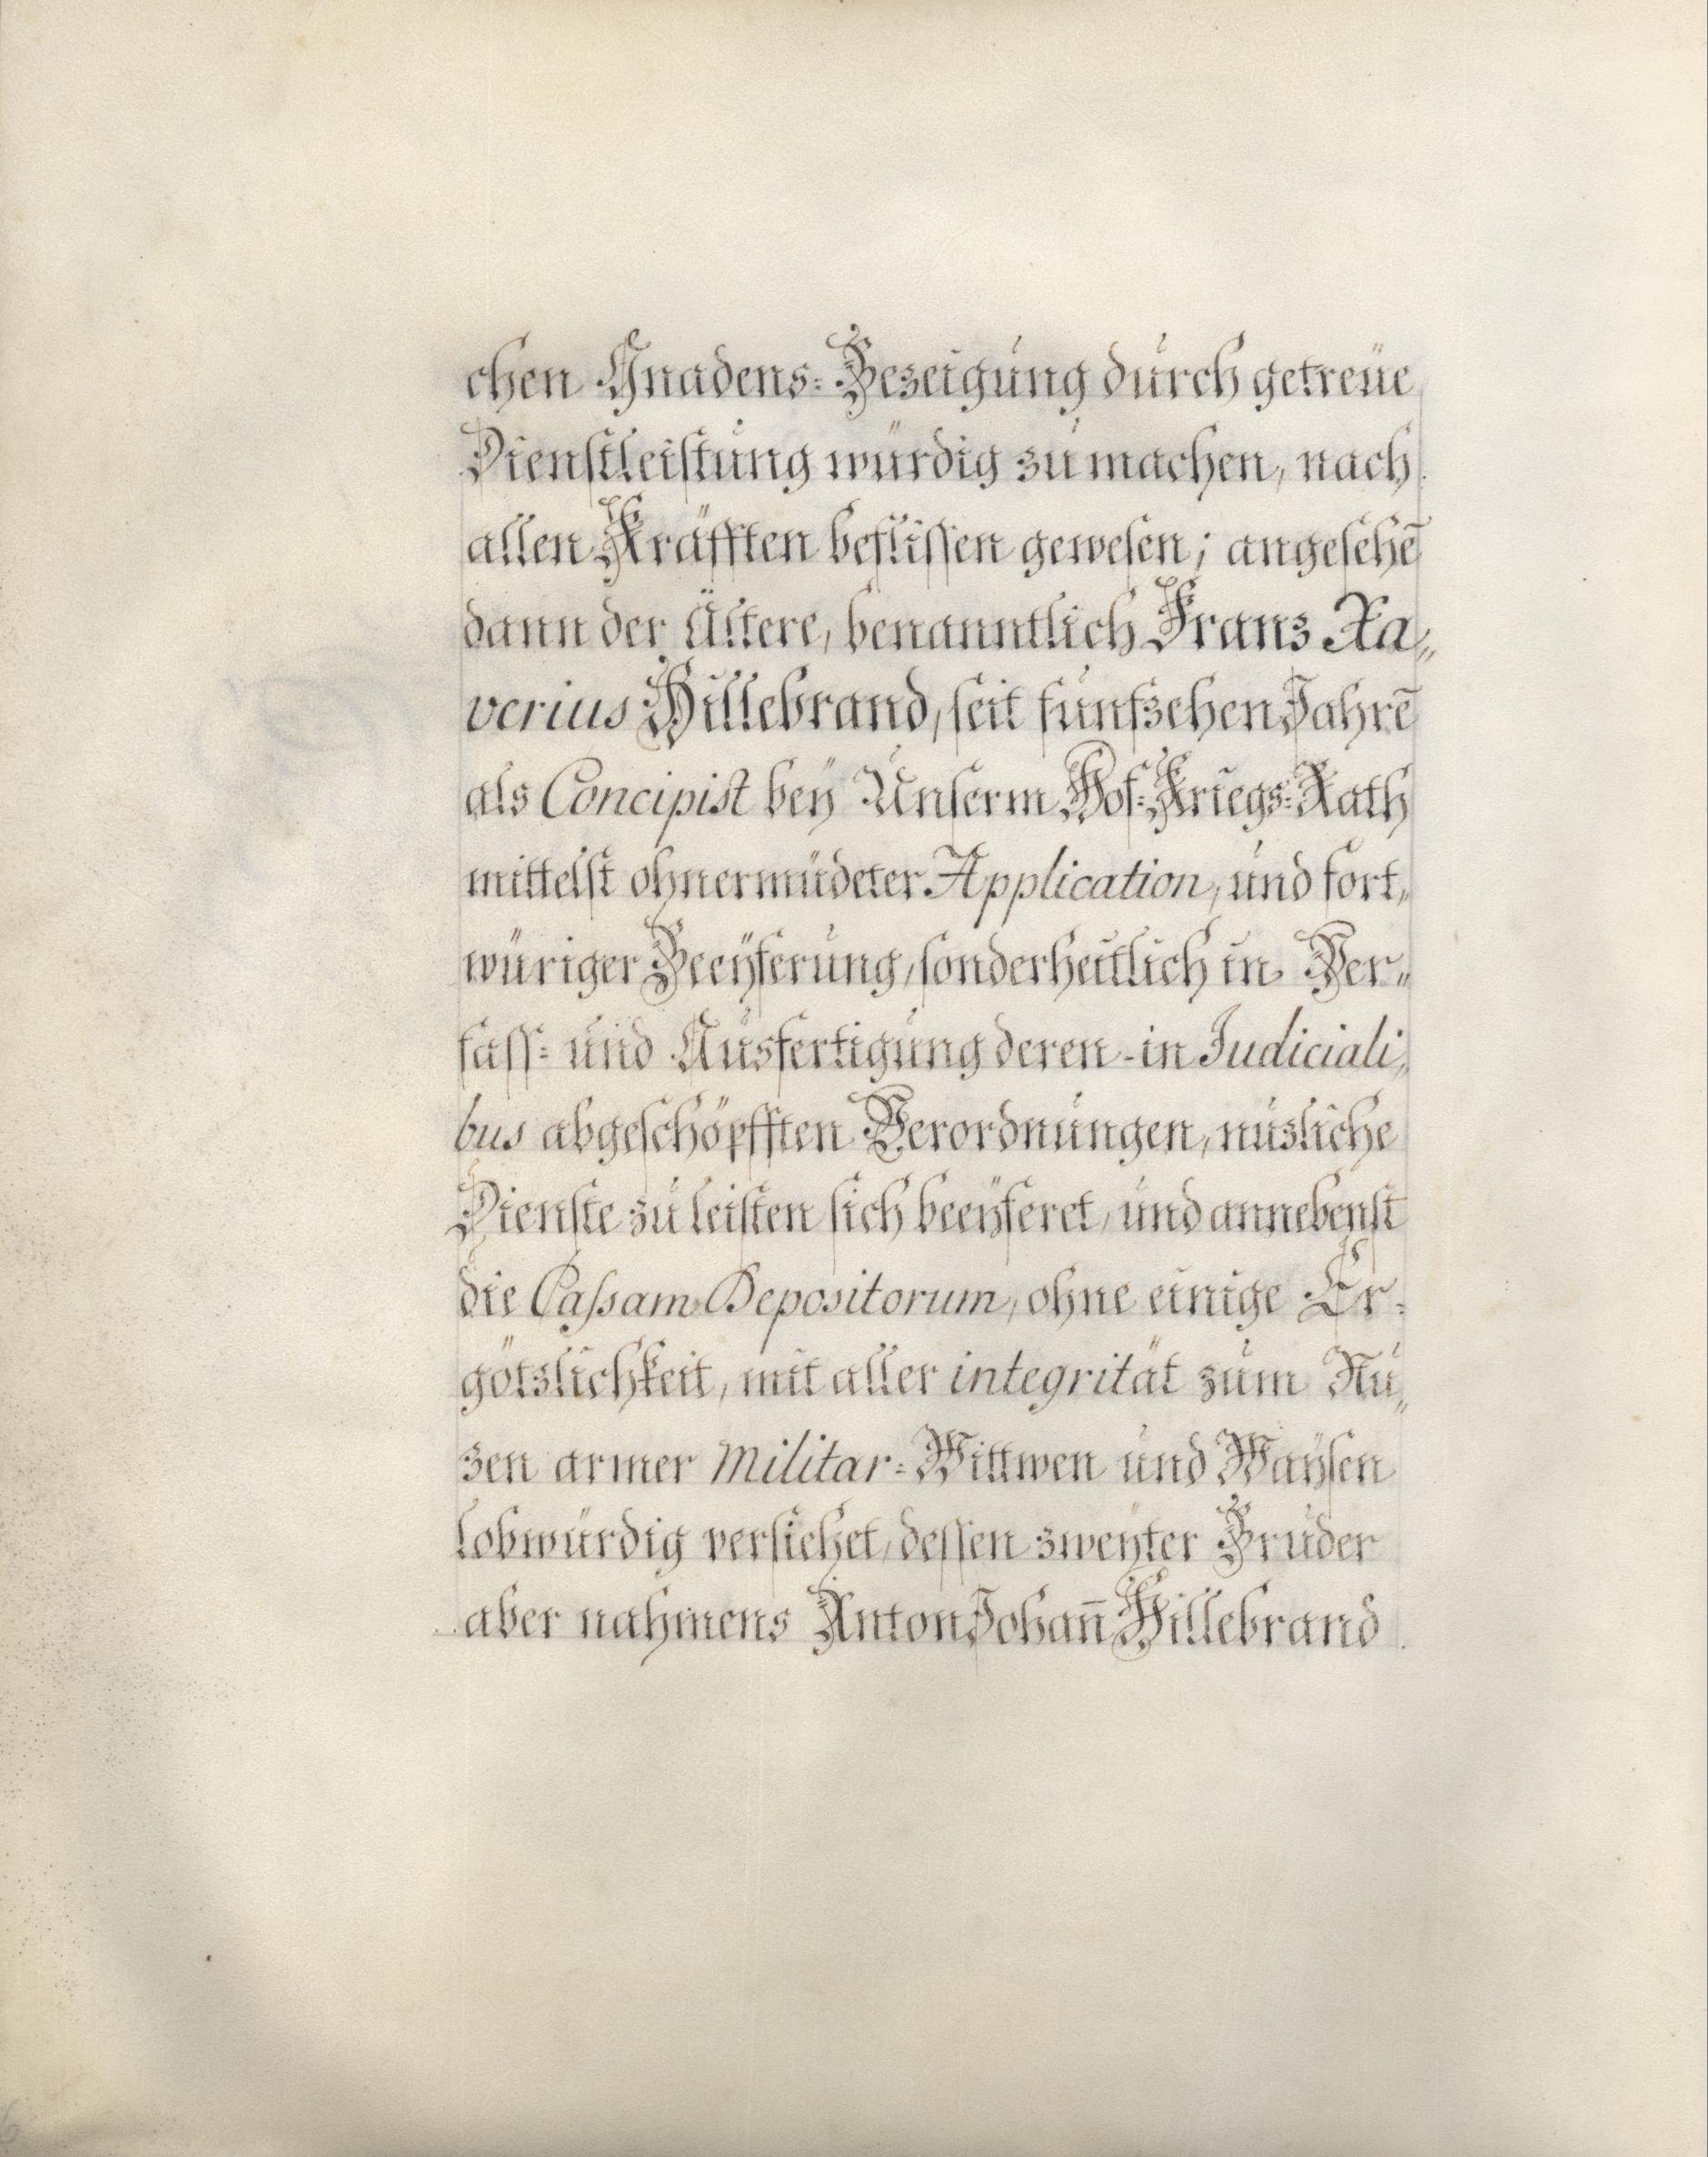 chen Gnadens=Bezeigung durch getreüe
Dienstleistung würdig zu machen, nach
allen Kräfften beflissen gewesen; angesehē
dann der Ältere, benanntlich Franz Xa„
verius Hillebrand, seit funfzehen Jahrē
als Concipist bey Unserm Hof=Kriegs=Rath
mittelst ohnermüdeter Application, und fort„
würiger Beeÿferung, sonderheitlich in Ver„
fass= und Ausfertigung deren-in Judiciali„
bus abgeschöpfften Verordnungen, nuzliche
Dienste zu leisten sich beeÿferet, und annebenst
die Cassam Depositorum, ohne einige Er=
götzlichkeit, mit aller integrität zum Nu„
zen armer Militar=Wittwen und Waÿsen
lobwürdig versiehet, dessen zweyter Bruder
aber nahmens Anton Johan̄ Hillebrand